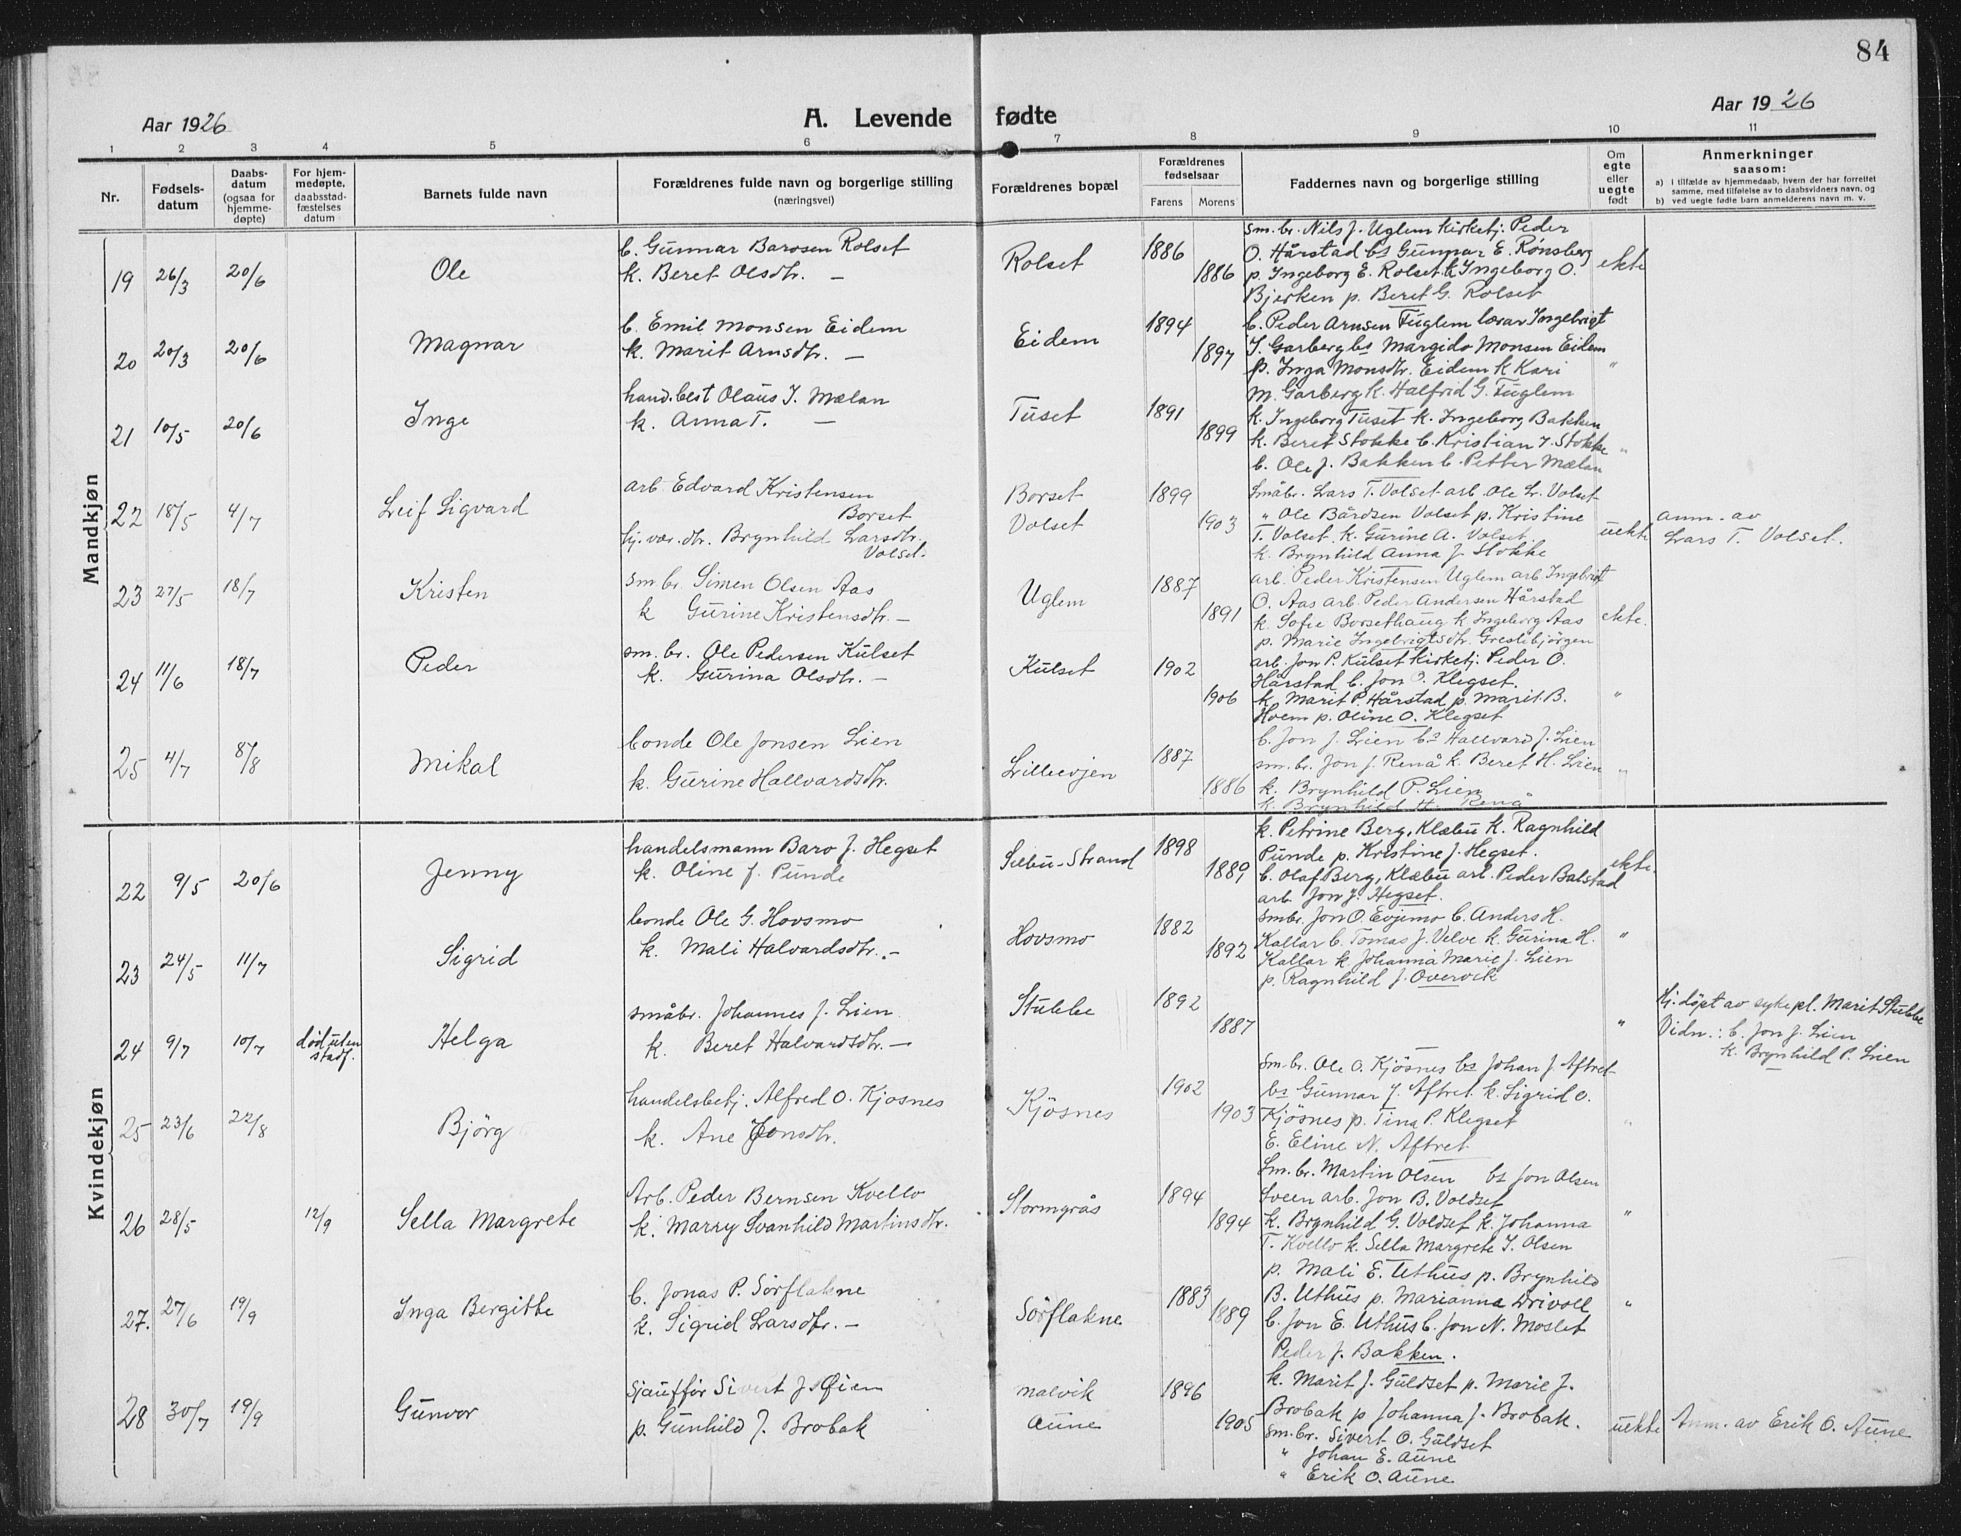 84
Aar 1926
A. Levende fødte
Aar 1926
1 2 3 4 5 6 7 8 9 10 11
Nr.
Fødsels-
datum
Daabs-
datum
(ogsaa for
hjemme-
døpte)
For hjem-
medøpte,
daabsstad-
fæstelses
datum
Barnets fulde navn
Forældrenes fulde navn og borgerlige stilling
(næringsvei)
Forældrenes bopæl
Forældrenes
fødselsaar
Farens Morens
Faddernes navn og borgerlige stilling
Om
egte
eller
uegte
født
Anmerkninger
saasom:
a) I tilfælde av hjemmedaab, hvem der har forrettet
samme, med tilføielse av to daabsvidners navn, og
b) ved uegte fødte barn anmelderens navn m. v.
Mandkjøn
19 26/3 20/6 Ole
b. Gunnar Barosen Rolset
k. Beret Olsdtr. —
Rolset 1886 1886
sm. br. Nils J. Uglem kirketj. Peder
O. Hårstad bs Gunnar E. Rønsberg
p. Ingeborg E. Rolset k Ingeborg O.
Bjerken p. Beret G. Rolset
ekte
20 20/3 20/6 Magnar
b. Emil Monsen Eidem
k. Marit Arnsdtr. —
Eidem 1894 1897
b. Peder Arnsen Fuglem lærar Ingebrigt
J. Garberg bs Margido Monsen Eidem
p. Inga Monsdtr. Eidem k Kari
M. Garberg k. Halfrid G. Fuglem
"
21 10/5 20/6 Inge
hand.best Olaus J. Mælan
k. Anna T. —
Tuset 1891 1899
k. Ingeborg Tuset k. Ingeborg Bakken
k. Beret Stokke b. Kristian J. Stokke
b. Ole J. Bakken b. Petter Mælan
"
22 18/5 4/7 Leif Sigvard
arb. Edvard Kristensen
Borset
hj. vær. dtr. Brynhild Larsdtr.
Volset.
Borset
Volset
1899 1903
Småbr. Lars T. Volset arb. Ole L. Volset
" Ole Bårdsen Volset p. Kristine
T. Volset k. Gurine A. Volset.
k. Brynhild Anna J. Stokke
uekte
anm. av
Lars T. Volset.
23 27/5 18/7 Kristen
sm br. Simen Olsen Aas
k Gurine Kristensdtr. —
Uglem 1887 1891
arb. Peder Kristensen Uglem arb. Ingebrigt
O. Aas arb. Peder Andersen Hårstad
k. Sofie Borsethaug k Ingeborg Aas
p. Marie Ingebrigtsdtr. Greslibjørgen
ekte.
24 11/6 18/7 Peder
sm. br. Ole Pedersen Kulset
k. Gurina Olsdtr. —
Kulset 1902 1906
arb. Jon P. Kulset kirketj. Peder O.
Hårstad b. Jon O. Klegset.
k. Marit P. Hårstad p. Marit B.
Hoem p. Oline O. Klegset
"
25 4/7 8/8 Mikal
bonde Ole Jonsen Lien
k. Gurine Hallvardsdtr.
Lilleevjen 1887 1886
b. Jon J. Lien bs Hallvard J. Lien
sm. br. Jon J. Renå k. Beret H. Lien
k. Brynhild P. Lien
k. Brynhild H. Renå
"
Kvindekjøn
22 9/5 20/6 Jenny
handelsmann Baro J. Hegset
k. Oline J. Punde
Selbu-Strand 1898 1889
k. Petrine Berg, Klæbu k. Ragnhild
Punde p. Kristine J. Hegset.
b. Olaf Berg, Klæbu arb. Peder Balstad
arb Jon J. Hegset.
ekte.
23 24/5 11/7 Sigrid
bonde Ole G. Hovsmo
k. Mali Halvardsdtr. —
Hovsmo 1882 1892
smbr. Jon O. Evjemo b. Anders H.
Kallar b. Tomas J. Velve k. Gurina H.
Kallar k Johanna Marie J. Lien
p. Ragnhild J. Overvik
"
24 9/7 10/7 død uten
stadf.
Helga
småbr. Johannes J. Lien
k. Beret Halvardsdtr. —
Stubbe 1892 1887
"
Hj. døpt av sykepl. Marit Stubbe
Vidn.: b. Jon J. Lien
k. Brynhild P. Lien
25 23/6 22/8 Bjørg
handelsbetj. Alfred O. Kjøsnes
k. Ane Jonsdtr.
Kjösnes 1902 1903
sm. br. Ole O. Kjösnes bs Johan J. Aftret
bs Gunnar J. Aftret k. Sigrid O.
Kjösnes p. Tina P. Klegset
E. Eline N. Aftret
"
26 28/5 12/9 Sella Margrete
Arb. Peder Bernsen Kvello
k. Marry Svanhild Martinsdtr.
Stormgrås 1894 1894
Sm. br. Martin Olsen bs Jon Olsen
Sveen arb. Jon B. Voldset
k. Brynhild G. Voldset k. Johanna
T. Kvello k. Sella Margrete J. Olsen
"
27. 27/6 19/9 Inga Bergitte
b. Jonas P. Sörflakne
k. Sigrid Larsdtr. —
Sörflakne 1883 1889
p. Mali E. Uthus p. Brynhild
B. Uthus p. Marianna Drivoll
b. Jon E. Uthus b. Jon N. Moslet
Peder J. Bakken.
"
28 30/7 19/9 Gunvor
Sjauffør Sivert J. Øien
p. Gunhild J. Brobak
Malvik
Aune
1896 1905
k. Marit J. Guldset p. Marie J.
Brobak p Johanna J. Brobak.
sm. br. Sivert O. Guldset
" Johan E. Aune
" Erik O. Aune
uekte
Anm. av Erik O. Aune